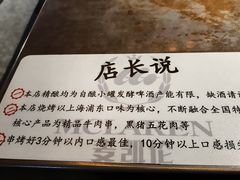 店长说
本店精酿均为自酿小罐发酵啤酒产能有限，缺酒请谅
本店烧烤以上海浦东口味为核心，不断融合全国特
核心产品为精品牛肉串，黑猪五花肉等
串烤好3分钟以内口感最佳，10分钟以上口感损失